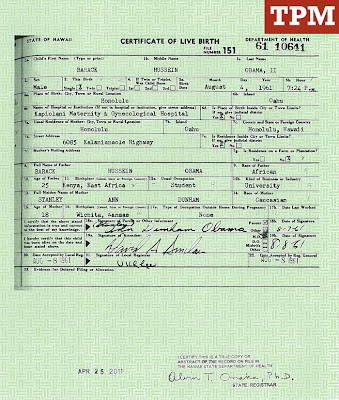 TPM
STATE OF HAWAII CERTIFICATE OF LIVE BIRTH DEPARTMENT OF HEALTH
FILE NUMBER 151 61 10641
1a. Child's First Name (Type or print) 1b. Middle Name 1c. Last Name
BARACK HUSSEIN OBAMA, II
2. Sex 3. This Birth 4. If Twin or Triplet, Was Child Born 5a. Birth Date Month Day Year 5b. Hour
Male Single Twin Triplet 1st 2nd 3rd August 4, 1961 7:24 P.
6a. Place of Birth: City, Town or Rural Location 6b. Island
Honolulu Oahu
6c. Name of Hospital or Institution (If not in hospital or institution, give street address) 6d. Is Place of Birth Inside City or Town Limits?
Kapiolani Maternity & Gynecological Hospital
7a. Usual Residence of Mother: City, Town or Rural Location 7b. Island 7c. County and State or Foreign Country
Honolulu Oahu Honolulu, Hawaii
7d. Street Address 7e. Is Residence Inside City or Town Limits?
6085 Kalanianaole Highway
7f. Mother's Mailing Address 7g. Is Residence on a Farm or Plantation?
8. Full Name of Father 9. Race of Father
BARACK HUSSEIN OBAMA African
10. Age of Father 11. Birthplace 12a. Usual Occupation 12b. Kind of Business or Industry
25 Kenya, East Africa Student University
13. Full Maiden Name of Mother 14. Race of Mother
STANLEY ANN DUNHAM Caucasian
15. Age of Mother 16. Birthplace 17a. Type of Occupation Outside Home During Pregnancy 17b. Date Last Worked
18 Wichita, Kansas None
I certify that the above stated information is true and correct to the best of my knowledge. 18a. Signature of Parent or Other Informant Parent Other 18b. Date of Signature
Ann Dunham Obama 8-7-61
I hereby certify that this child was born alive on the date and hour stated above. 19a. Signature of Attendant M.D. D.O. Midwife Other 19b. Date of Signature
David A Sinclair 8-8-61
20. Date Accepted by Local Reg. 21. Signature of Local Registrar 22. Date Accepted by Reg. General
AUG -8 1961 AUG -8 1961
23. Evidence for Delayed Filing or Alteration
APR 25 2011
I CERTIFY THIS IS A TRUE COPY OR
ABSTRACT OF THE RECORD ON FILE IN
THE HAWAII STATE DEPARTMENT OF HEALTH
Alvin T. Onaka, Ph.D.
STATE REGISTRAR